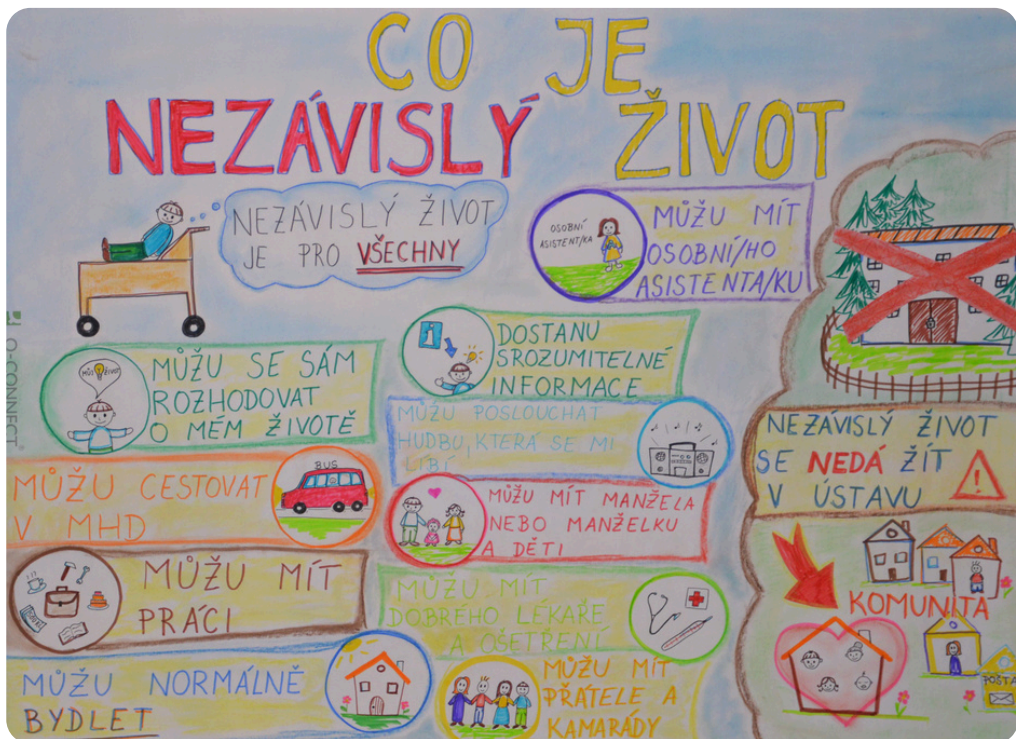 CO JE
NEZÁVISLÝ ŽIVOT
NEZÁVISLÝ ŽIVOT
JE PRO VŠECHNY
OSOBNÍ
ASISTENT/KA
MŮŽU MÍT
OSOBNÍ/HO
ASISTENTA/KU
MŮJ ŽIVOT
MŮŽU SE SÁM
ROZHODOVAT
O MÉM ŽIVOTĚ
DOSTANU
SROZUMITELNÉ
INFORMACE
MŮŽU POSLOUCHAT
HUDBU, KTERÁ SE MI
LÍBÍ
MŮŽU CESTOVAT
V MHD
BUS
MŮŽU MÍT MANŽELA
NEBO MANŽELKU
A DĚTI
MŮŽU MÍT
PRÁCI
MŮŽU MÍT
DOBRÉHO LÉKAŘE
A OŠETŘENÍ
MŮŽU NORMÁLNĚ
BYDLET
MŮŽU MÍT
PŘÁTELE A
KAMARÁDY
NEZÁVISLÝ ŽIVOT
SE NEDÁ ŽÍT
V ÚSTAVU
KOMUNITA
POŠTA
Q-CONNECT